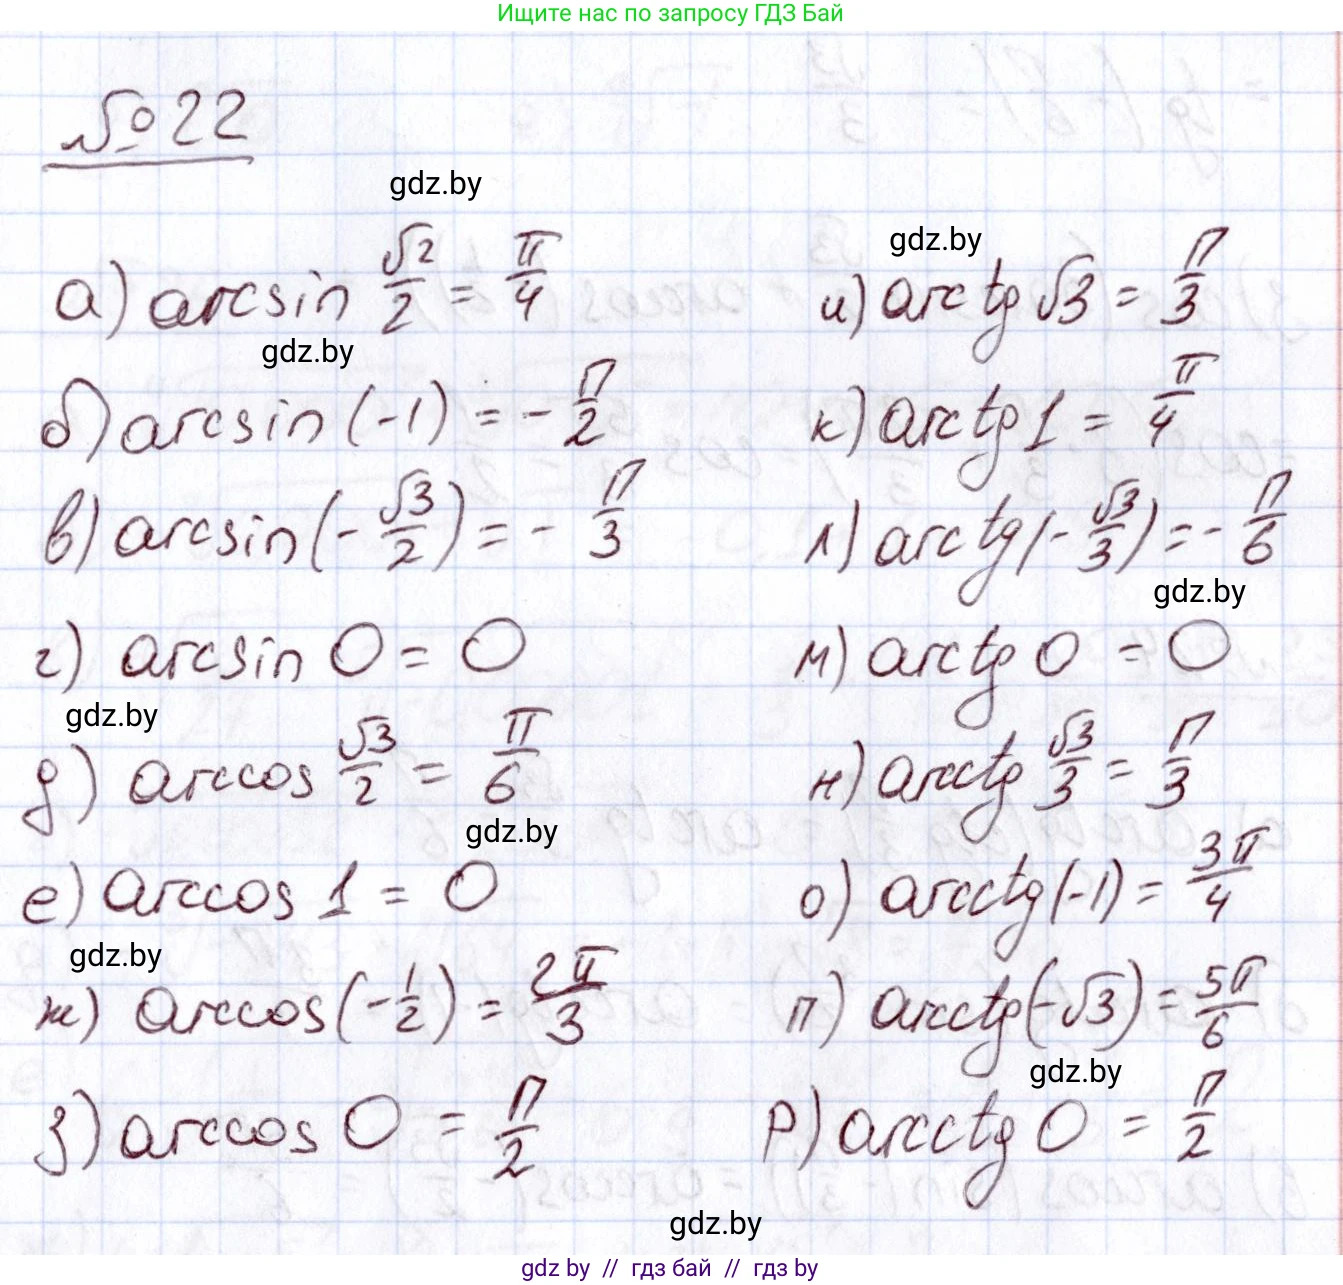 Ищите нас по запросу ГДЗ Бай
№ 22
gdz.by
а) arcsin √2/2 = π/4
gdz.by
б) arcsin (-1) = - π/2
в) arcsin (- √3/2) = - π/3
г) arcsin 0 = 0
gdz.by
д) arccos √3/2 = π/6
gdz.by
е) arccos 1 = 0
gdz.by
ж) arccos (- 1/2) = 2π/3
з) arccos 0 = π/2
gdz.by
и) arctg √3 = π/3
к) arctg 1 = π/4
л) arctg (- √3/3) = - π/6
gdz.by
м) arctg 0 = 0
н) arcctg √3/3 = π/3
о) arcctg (-1) = 3π/4
п) arcctg (-√3) = 5π/6
gdz.by
р) arcctg 0 = π/2
gdz.by
gdz by // гдз бай // гдз by